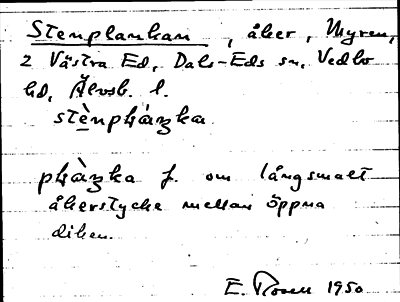 Stenplankan, åker, Myren,
2 Västra Ed, Dals-Eds sn, Vedbo
hd, Älvsb. l.
stènphàŋka.
phàŋka f. om långsmalt
åkerstycke mellan öppna
diken.
E. Rosell 1950